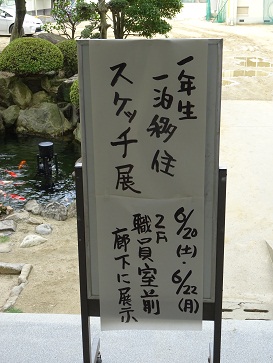 一年生
一泊移住
スケッチ展
6/20(土)
6/22(月)
2F
職員室前
廊下に展示